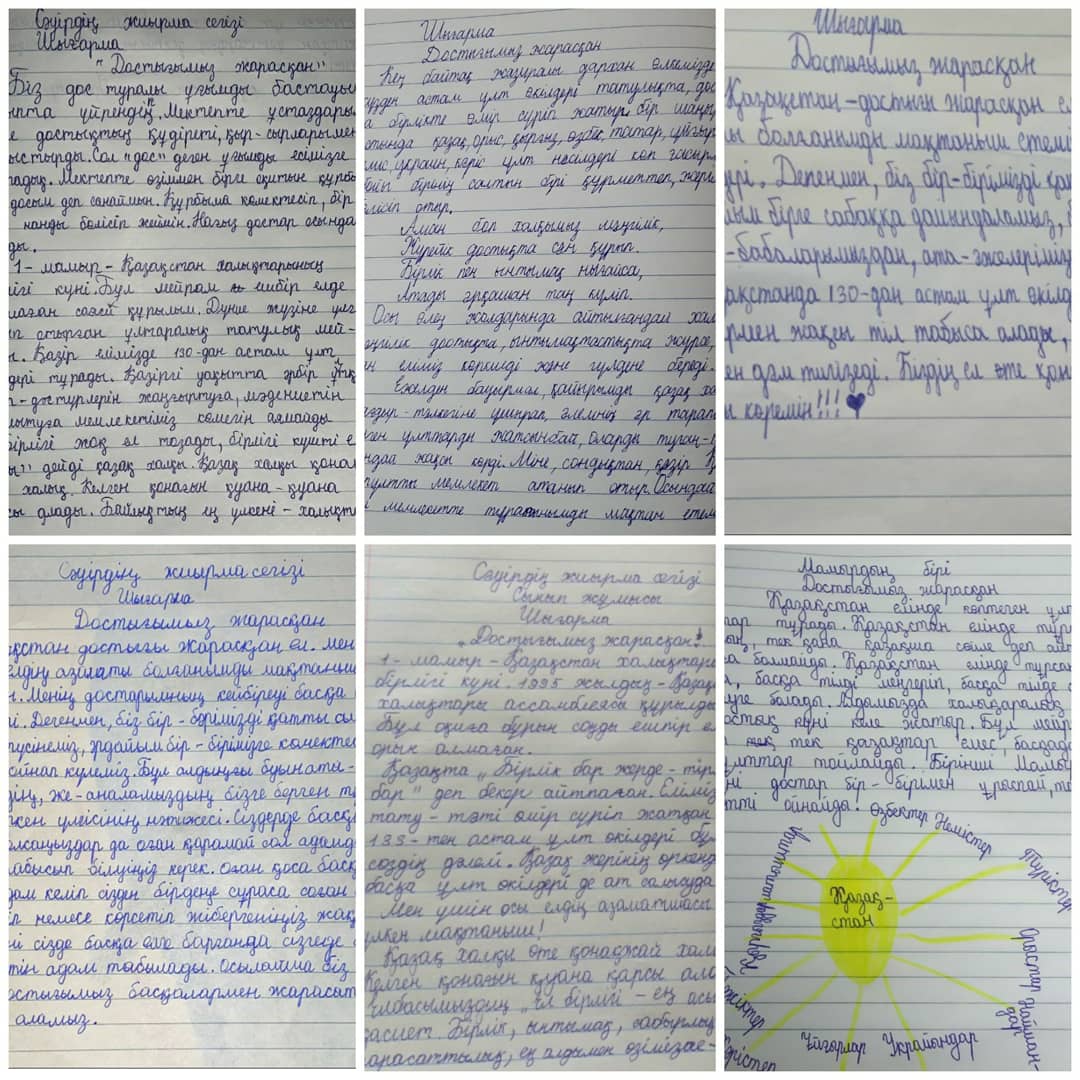 Сәуірдің жиырма сегізі
Шығарма
"Достығымыз жарасқан"
Біз дос туралы ұғымды бастауыш
ыпта үйрендің. Мектепте ұстаздары
е достықтың құдіреті, қыр-сырларымен
ыстырды. Сол "дос" деген ұғымды есімізге
Мектепте өзіммен бірге оқитын құрбы
досым деп санаймын. Құрбыма көмектесіп, бір
нанды бөлісіп жеймін. Нағыз достар осында
ды.
1-мамыр-Қазақстан халықтарының
лігі күні. Бұл мейрам ешбір елде
маған сәтей құрылым. Дүние жүзіне үлгі
ұлтаралық татулық мей-
ы. Қазір елімізде 130-дан астам ұлт
дері тұрады. Қазіргі уақытта әрбір
п-дәстүрлерін жаңғыртуға, мәдениетін
мытуға мемлекетіміз көмегін аямайды
бірлігі жоқ ел тозады, бірлігі күшті е
ы" дейді қазақ халқы. Қазақ халқы қонақ
халық. Келген қонағын қуана-қуана
сы алады. Байлықтың ең үлкені-халықт
Шығарма
Достығымыз жарасқан
Кең байтақ жазиралы дархан өлкемізде
жүзден астам ұлт өкілдері татулықта, дос
а бірлікте өмір сүріп жатыр. Бір шаңыр
тында қазақ, орыс, қырғыз, өзбек, татар, ұйғыр
міс, украин, кәріс ұлт нәсілдері көп ғасырл
бойы бірінің салтын бірі құрметтеп, жері
өлісіп отыр.
Аман бол халқымыз мәңгілік,
Жүрейік достықта сән құрып.
Бірлік пен ынтымақ нығайса,
Атады әрқашан таң күліп.
Осы өлең жолдарында айтылғандай хал
әңгілік достықта, ынтымақтастықта жүрсе,
н еліміз көркейеді және гүлдене береді.
Ежелден бауырмал, қайырымды қазақ ха
ғдыр-тәлкегіне ұшырап, әлемнің әр тарап
ген ұлттарды жатсынбай, оларды туған-
ндай жақсы көрді. Міне, сондықтан, қазір Қ
пұлтты мемлекет атанып отыр. Осындай
мемлекетте тұратынымды мақтан етем
Шығарма
Достығымыз жарасқан
Қазақстан-достығы жарасқан ел
ы болғанымды мақтаныш етемі
ері. Дегенмен, біз бір-бірімізді қат
ым бірге сабаққа дайындаламыз,
-бабаларымыздан, ата-әжелеріміз
ақстанда 130-дан астам ұлт өкілд
рмен жақсы тіл табыса алады,
ен дәм тигізеді. Біздің ел өте қон
ы көремін!!!
Сәуірдің жиырма сегізі
Шығарма
Достығымыз жарасқан
қстан достығы жарасқан ел. мен
елдің азаматы болғанымды мақтаныш
н. Менің достарымның кейбіреуі басқа
і. Дегенмен, біз бір-бірімізді қатты сы
түсінеміз, әрдайым бір-бірімізге көмектес
ойнап күлеміз. Бұл алдыңғы буынаты-
дің, же-аналамыздың бізге берген т
кен үлгісінің нәтижесі. Сіздерде басқ
лсаңыздар да оған қарамай сол адамд
абысып білуіңіз керек. Оған қоса басқ
дам келіп сізден бірдеңе сұраса соған
п немесе көрсетіп жібергеніңіз жақ
ні сізде басқа елге барғанда сізгеде
тін адам табылады. Осылайша біз
остығымыз басқалармен жарасат
аламыз.
Сәуірдің жиырма сегізі
Сынып жұмысы
Шығарма
„Достығымыз жарасқан"
1-мамыр-Қазақстан халықтары
бірлігі күні. 1995 жылдың-Қазақ
халықтары ассамблеясы құрылды
бұл оқиға бұрын соңды ешпір е
орын алмаған.
Қазақта „Бірлік бар жерде-тір
бар" деп бекер айтпаған. Еліміз
тату-тәтті өмір сүріп жатқан
135-тен астам ұлт өкілдері бұ
сөздің дәлелі. Қазақ жерінің өркенд
басқа ұлт өкілдері де ат салысуда
Мен үшін осы елдің азаматшасы
үлкен мақтаныш!
Қазақ халқы өте қонақжай хал
Келген қонағын қуана қарсы ала
Елбасымыздың „Ел бірлігі-ең асы
қасиет. Бірлік, ынтымақ, сабырлық
парасаттылық, ең алдымен өзімізге-
Мамырдың бірі
Достығымыз жарасқан
Қазақстан елінде көптеген ұлт
тар тұрады. Қазақстан елінде тұрса
ың, тек қана қазақша сөйле деп айт
а болмайды. Қазақстан елінде тұрсаң
а, басқа тілді меңгеріп, басқа тілде с
уге болады. Алдымызда халықаралық
остық күні келе жатыр. Бұл мейр
тек қазақтар емес, басқада
ұлттар тойлайды. Бірінші Мамыр
ні достар бір-бірімен ұрыспай, та
тті ойнайды.
Өзбектер
Немістер
Түріктер
Қазақ-
стан
Орыстар
Украйындар
Ұйғырлар